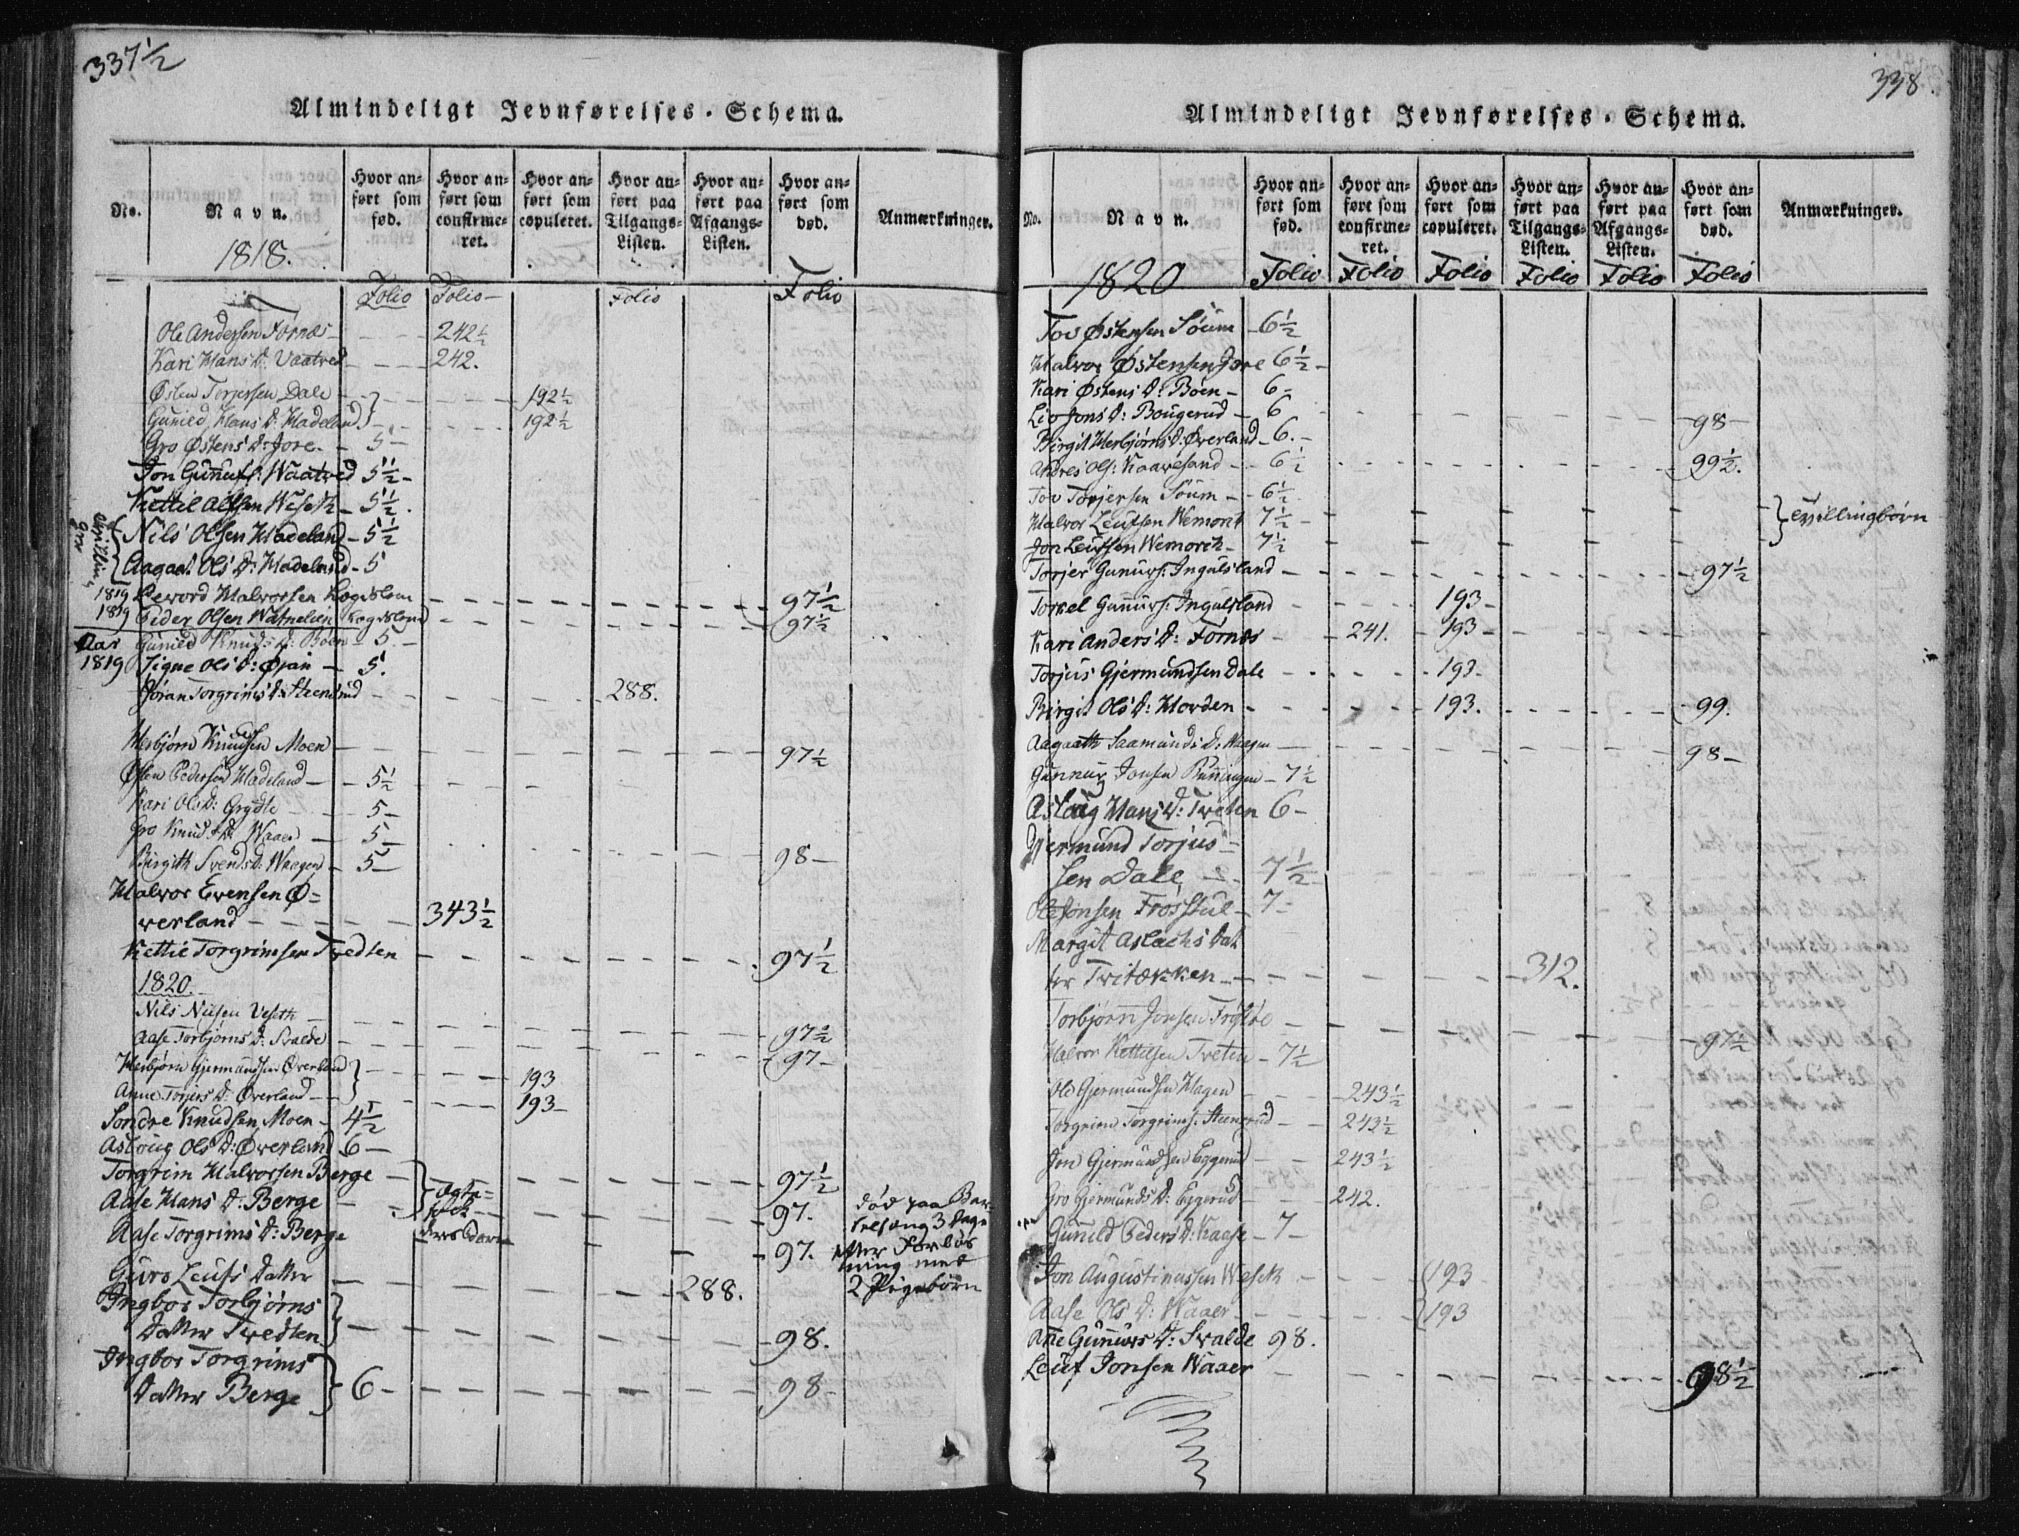 337½
Almindeligt Jevnførelses-Schema.
No.
Navn.
Hvor anført som fød.
Hvor anført som confirmeret.
Hvor anført som copuleret.
Hvor anført paa Tilgangs-Listen.
Hvor anført paa Afgangs-Listen.
Hvor anført som død.
Anmærkninger.
1818.
Folio Folio Folio Folio
Ole Andersen Førnæs - 242½
Kari Hans D: Vaatved - 242.
Østen Torjersen Dale - 192½
Gunild Hans D: Hadeland - 192½
Gro Østens D: Jore - 5 -
Jon Gunnufs: Waatved 5½ -
Kettil Olssen Weseth - 5½.
Nils Olsen Hadeland - 5½
Aagaat Ols D: Hadeland - 5
1819 Levord Halvorsen Kogdslom - 97½
1819 Peder Olsen - 97½
Aar Gunild Knuds D: Boen - 5 -
1819 Signe Ols D: Øian - 5.
Jøran Torgrims D: Steensrud - 288.
Herbjørn Knudsen Moen - 97½
Østen Pedersen Hadeland - 5½
Kari Ols D: Grydte - 5 -
Gro Knuds D: Waaer - 5 -
Birgith Svends D: Waagen - 5 - 98 -
Halvor Evensen Ø=
verland - 343½
Kettil Torgrimsen Tvedten - 97½
1820.
Nils Nilsen Veseth - 97½
Aase Torbjørns D: Svalde - 97 -
Herbjørn Gjermundsen Øverland - 193
Anne Torjers D: Øverland - 193 -
Sondre Knudsen Moen - 4½
Asloug Ols D: Øverland 6 -
Torgrim Halvorsen Berge - 97½
Aase Hans D: Berge - 97.
Aase Torgrims D: Berge - 97.
død paa Bar-
selseng 3 Dage
efter Forløs
ning med
2 Pigebørn
Guro Leufs Datter - 288.
Ingbor Torbjørns
Datter Tvedten - 98.
Ingbor Torgrims
Datter Berge 6 - 98 -
338.
Almindeligt Jevnførelses-Schema.
No.
Navn.
Hvor anført som fød.
Hvor anført som confirmeret.
Hvor anført som copuleret.
Hvor anført paa Tilgangs-Listen.
Hvor anført paa Afgangs-Listen.
Hvor anført som død.
Anmærkninger.
1820 Folio Folio Folio Folio Folio Folio
Tov Østensen Søum - 6½
Halvor Østensen Jore 6½ -
Kari Østens D: Boen - 6 -
Liv Jons D: Bougerud - 6 - 98 -
Birgit Herbjørns D: Øverland - 6. -
Andres Ols: Kaavesand - 6½ - 99½.
Tov Torjersen Søum - 6½
Halvor Leufsen Wemork 7½ -
Jon Leufsen Wemorck - 7½
Tvillingbørn
Torjer Gunurs: Ingulsland - 97½
Torkel Gunnurs: Ingulsland - 193 -
Kari Anders D: Førnæs - 241. - 193 -
Torjus Gjermundsen Dale - 193 -
Birgit Ols D: Horden - 193. - 99.
Aagaath Saamunds D: Waagen - 98 -
Gunnur Jonsen Rønningen - 7½
Asloug Hans D: Tveten 6 -
Gjermund Torjus=
sen Dale - 7½
Ole Jonsen Frøsstul - 7 -
Margit Aslachs Dat
ter Tvitækken - 312.
Torbjørn Jonsen Frøstøe - 97½
Halvor Kettilsen Tveten - 7½
Ole Gjermundsen Hagen - 243½
Torgrim Torgrims: Steensrud - 243½
Jon Gjermundsen Eggerud - 243½
Gro Gjermunds D: Eggerud - 242.
Gunild Peders D: Kaase - 7 -
Jon Augustinussen Weseth - 193
Aase Ols D: Waaer - 193
Ane Gunurs D: Svalde 98.
Leuf Jonsen Waaer - 98½